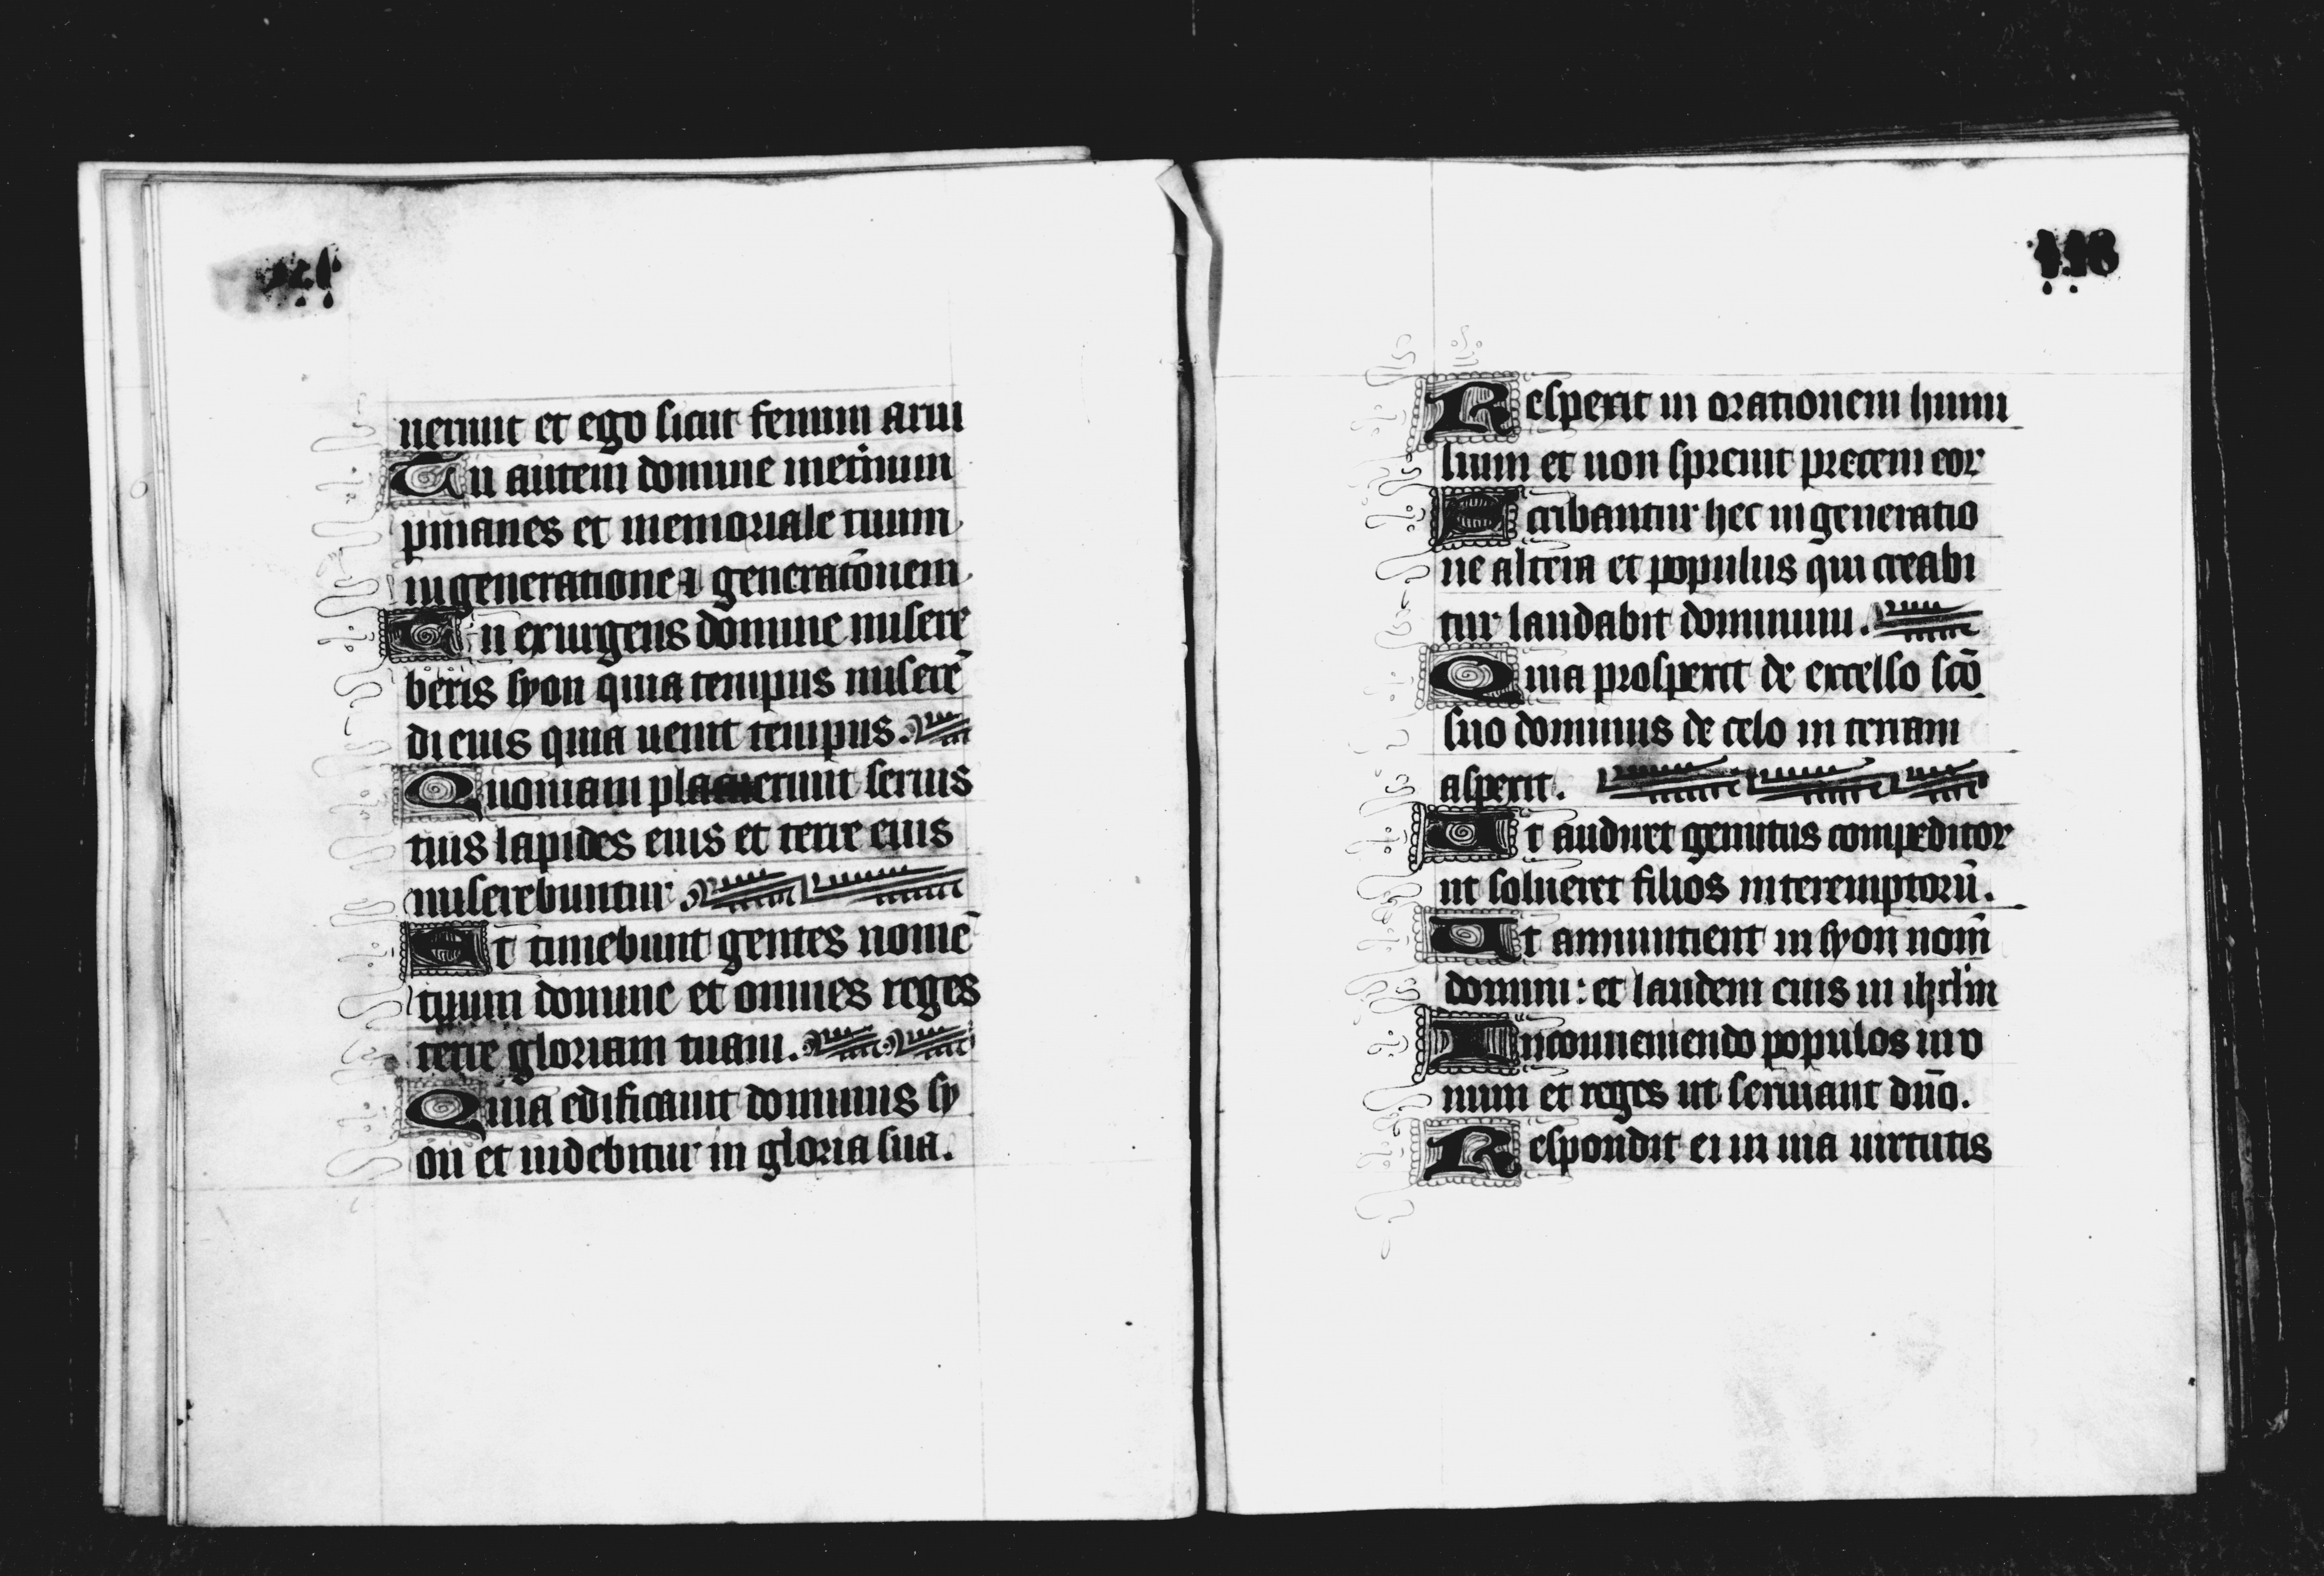 uerunt et ego sicut fenum arui
Tu autem domine in eternum
pmanes et memoriale tuum
in generatione ⁊ generatōnem
Tu exurgens domine misere
beris syon quia tempus miserē
di eius quia uenit tempus.
Quoniam placuerunt seruis
tuis lapides eius et terre eius
miserebuntur
Et timebunt gentes nomē
tuum domine et omnes reges
terre gloriam tuam.
Quia edificauit dominus sy
on et uidebitur in gloria sua.
Respexit in orationem humi
lium et non spreuit precem eor
Scribantur hec in generatio
ne altera et populus qui creabi
tur laudabit dominum.
Quia prospexit de excelso scō
suo dominus de celo in terram
aspexit.
Ut audiret gemitus compeditor
ut solueret filios interemptorū.
Ut annuntient in syon nom̄
domini: et laudem eius in ihrlm
In conueniendo populos in v
num et reges ut seruiant dn̄o.
Respondit ei in uia uirtutis